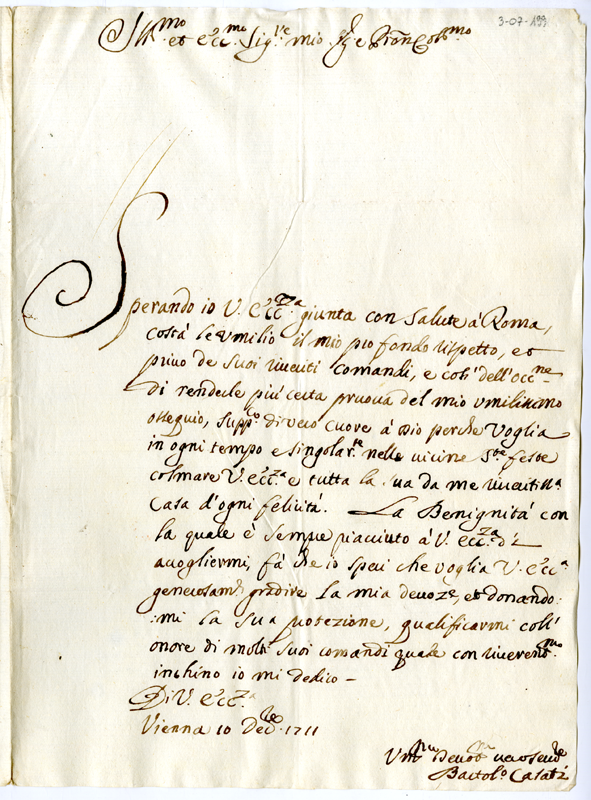 3-07-199
Ill.mo et Ecc.mo Sig.re mio Sig.e P̃ron Col.mo
Sperando io V. Ecc.za giunta con salute á Roma,
costá le umilio il mio profondo rispetto, et
privo de suoi riveriti comandi, e cosi dell'Occ.ne
di renderle piú certa pruova del mio umilissimo
osseguio, supp.co di vero cuore á Dio perche voglia
in ogni tempo e singolar.te nelle vicine S.te feste
colmare V. Ecc.za e tutta la sua da me riveritiss.a
Casa d'ogni felicitá. La Benignitá con
la quale é sempre piacciuto á V. Ecc.za di
accogliermi, fá che io speri che voglia V. Ecc.a
generosam.te gradire la mia devoz.e, et donando:
:mi la sua protezione, qualificarmi coll'
onore di molti suoi comandi quale con riverent.mo
inchino io mi dedico -
Di V. Ecc.za
Vienna 10 Dec.bre 1711
Um.mo Devot.mo
Bartol.o Casati